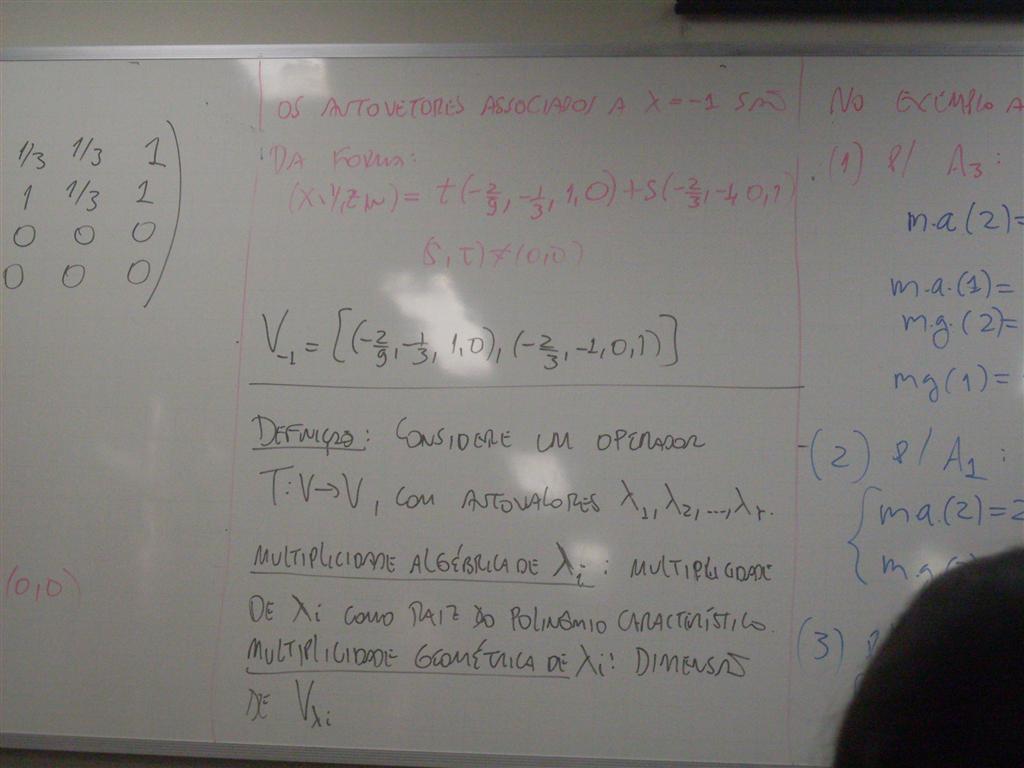 1/3 1/3 1
1 1/3 1
0 0 0
0 0 0
(0,0)
OS AUTOVETORES ASSOCIADOS A λ = -1 SÃO
DA FORMA:
(X,Y,Z,W) = t(-2/9, -1/3, 1, 0) + s(-2/3, -1, 0, 1)
(S, T) ≠ (0,0)
V₋₁ = [(-2/9, -1/3, 1, 0), (-2/3, -1, 0, 1)]
DEFINIÇÃO: CONSIDERE UM OPERADOR
T: V → V, COM AUTOVALORES λ₁, λ₂, ..., λr.
MULTIPLICIDADE ALGÉBRICA DE λi: MULTIPLICIDADE
DE λi COMO RAIZ DO POLINÔMIO CARACTERÍSTICO.
MULTIPLICIDADE GEOMÉTRICA DE λi: DIMENSÃO
DE Vλi
NO EXEMPLO A
(1) P/ A₃:
m.a.(2)=
m.a.(1)=
m.g.(2)=
mg(1)=
(2) P/ A₁:
ma.(2)=2
m.g
(3)